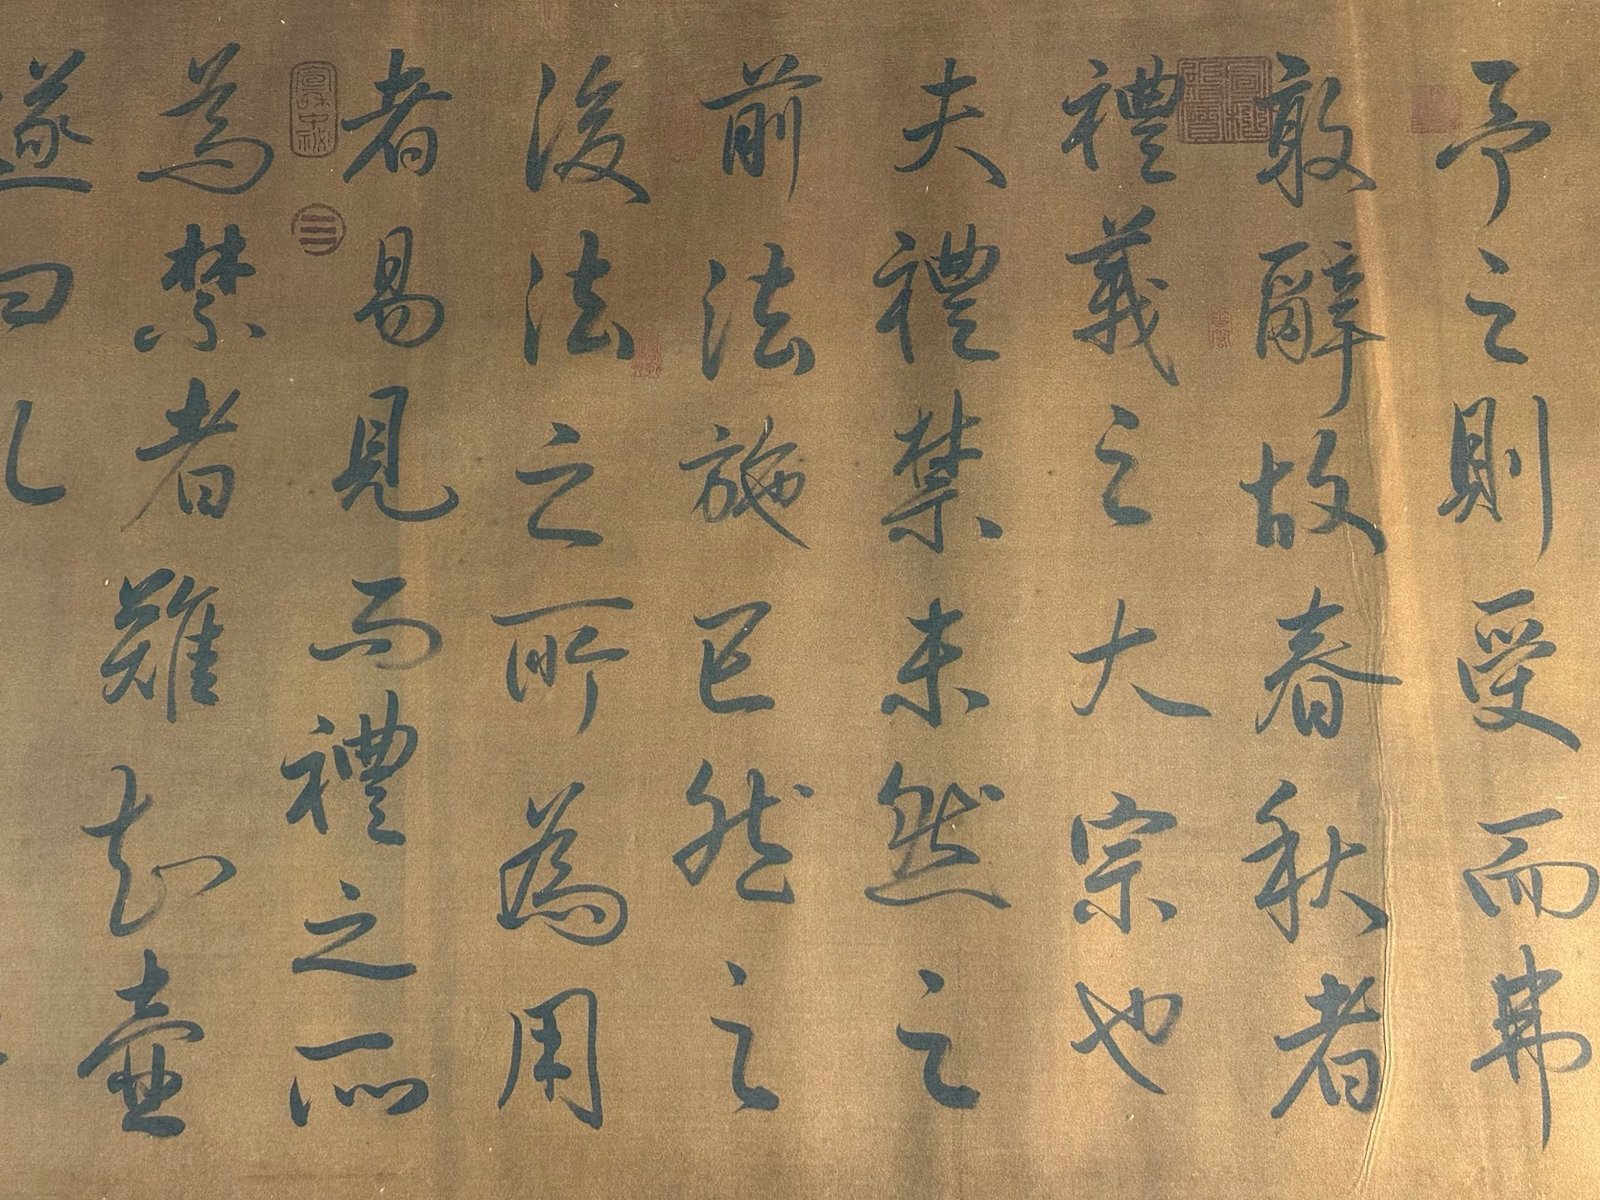 予之則受而弗
敢辭故春秋者
禮義之大宗也
夫禮禁未然之
前法施已然之
後法之所為用
者易見而禮之所
為禁者難知壺
遂曰孔